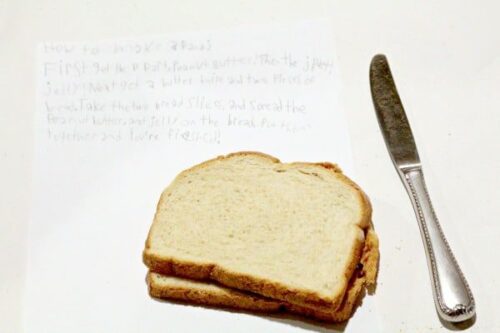 How to make a
First get the Peanut butter, Then the
jelly! Next get a butter knife and two Pieces of
bread. Take the two bread slices, and spread the
Peanut butter, and jelly on the bread. Put them
together and you're finished!